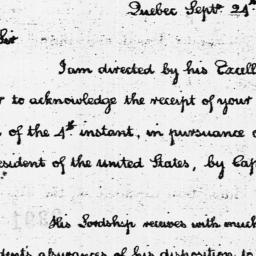 Quebec Septr. 24th
Sir
I am directed by his Excell
to acknowledge the receipt of your
of the 4th instant, in pursuance
esident of the United States, by Cap
His Lordship receives with much
dent's assurances of his disposition to